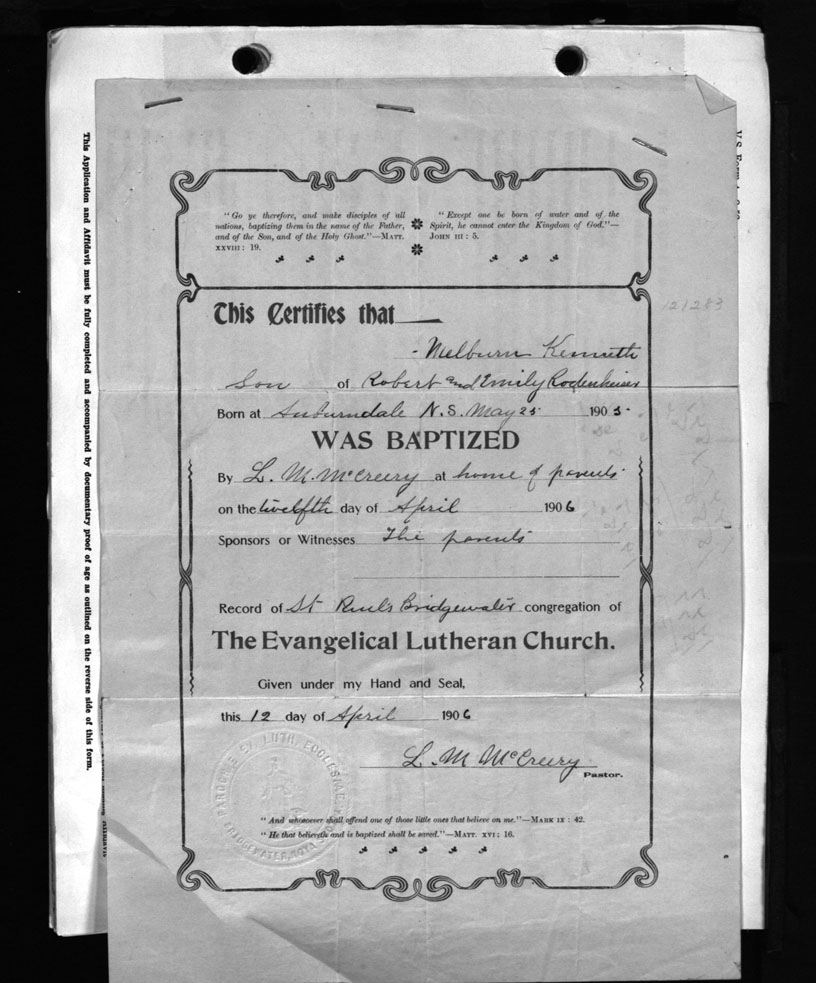 This Application and Affidavit must be fully completed and accompanied by documentary proof of age as outlined on the reverse side of this form.
"Go ye therefore, and make disciples of all
nations, baptizing them in the name of the Father,
and of the Son, and of the Holy Ghost."—MATT.
XXVIII: 19.
"Except one be born of water and of the
Spirit, he cannot enter the Kingdom of God."—
JOHN III: 5.
121283
This Certifies that
Melburn Kenneth
Son of Robert and Emily Rodenheiser
Born at Auburndale N.S. May 25 1905
WAS BAPTIZED
By L. M. McCreery at home of parents
on the twelfth day of April 1906
Sponsors or Witnesses The parents
Record of St Paul's Bridgewater congregation of
The Evangelical Lutheran Church.
Given under my Hand and Seal,
this 12 day of April 1906
L. M. McCreery
Pastor.
LUTH. ECCLESIAE
BRIDGEWATER, NOVA
"And whosoever shall offend one of those little ones that believe on me."—MARK IX: 42.
"He that believeth and is baptized shall be saved."—MATT. XVI: 16.